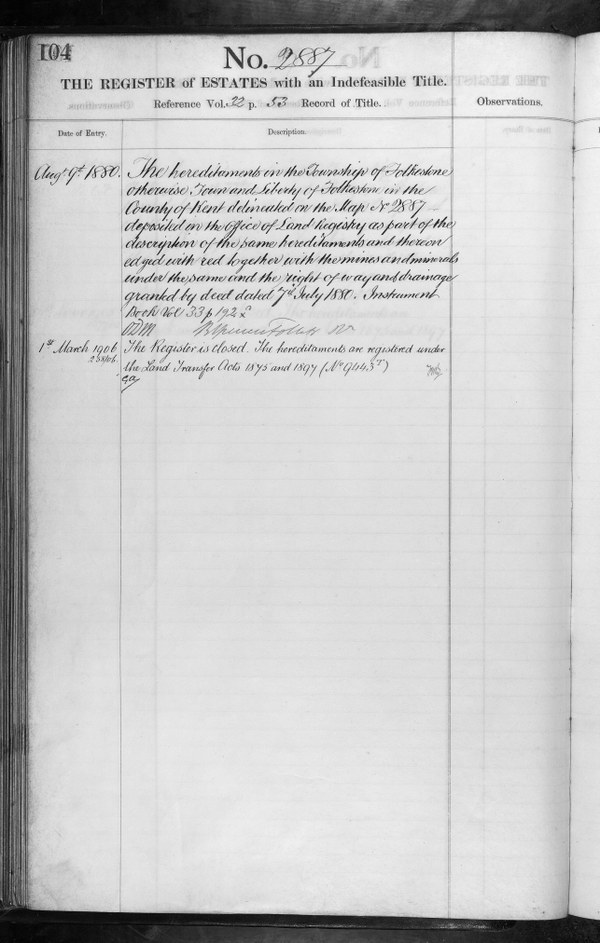 104
No. 2887
THE REGISTER of ESTATES with an Indefeasible Title.
Reference Vol. 22 p. 53 Record of Title.
Observations.
Date of Entry.
Description.
Augt 9th 1880. The hereditaments in the Township of Folkestone
otherwise Town and Liberty of Folkestone in the
County of Kent delineated on the Map No 2887
deposited in the Office of Land Registry as part of the
description of the same hereditaments and thereon
edged with red together with the mines and minerals
under the same and the right of way and drainage
granted by deed dated 7th July 1880. Instrument
Book Vol 33 p 192
1st March 1906 The Register is closed. The hereditaments are registered under
the Land Transfer Acts 1875 and 1897 (No 9443 T)